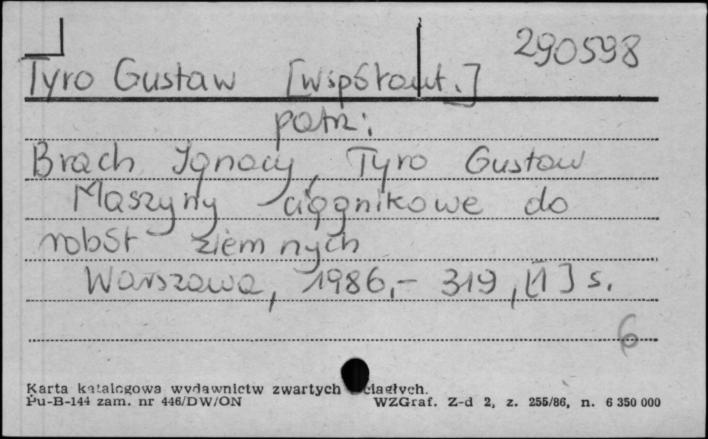 290598
Tyro Gustaw [współaut.]
patrz:
Brach Ignacy, Tyro Gustaw
Maszyny ciągnikowe do
robót ziemnych
Warszawa, 1986,- 319, [1] s.
6
Karta katalogowa wydawnictw zwartych ciągłych.
Pu-B-144 zam. nr 446/DW/ON WZGraf. Z-d 2, z. 255/86, n. 6 350 000